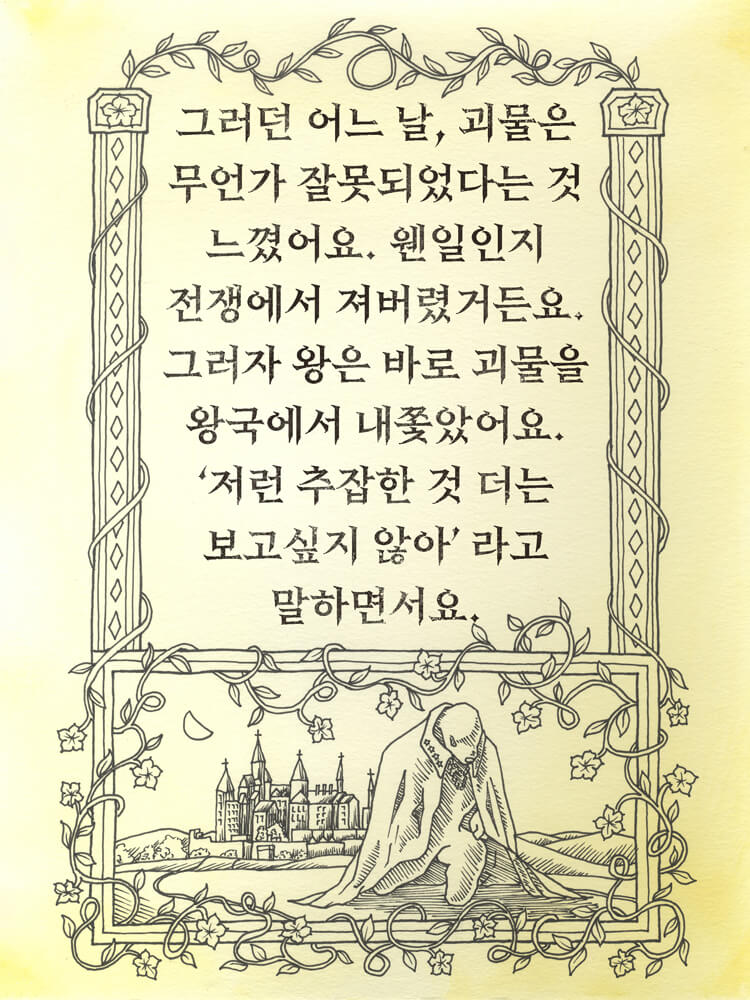 그러던 어느 날, 괴물은
무언가 잘못되었다는 것
느꼈어요. 웬일인지
전쟁에서 져버렸거든요.
그러자 왕은 바로 괴물을
왕국에서 내쫓았어요.
‘저런 추잡한 것 더는
보고싶지 않아’ 라고
말하면서요.